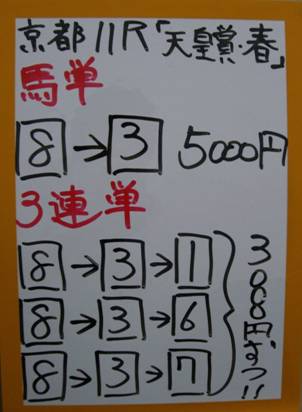 京都11R「天皇賞・春」
馬単
8→3 5000円
3連単
8→3→1
8→3→6
8→3→7
308円ずつ!!